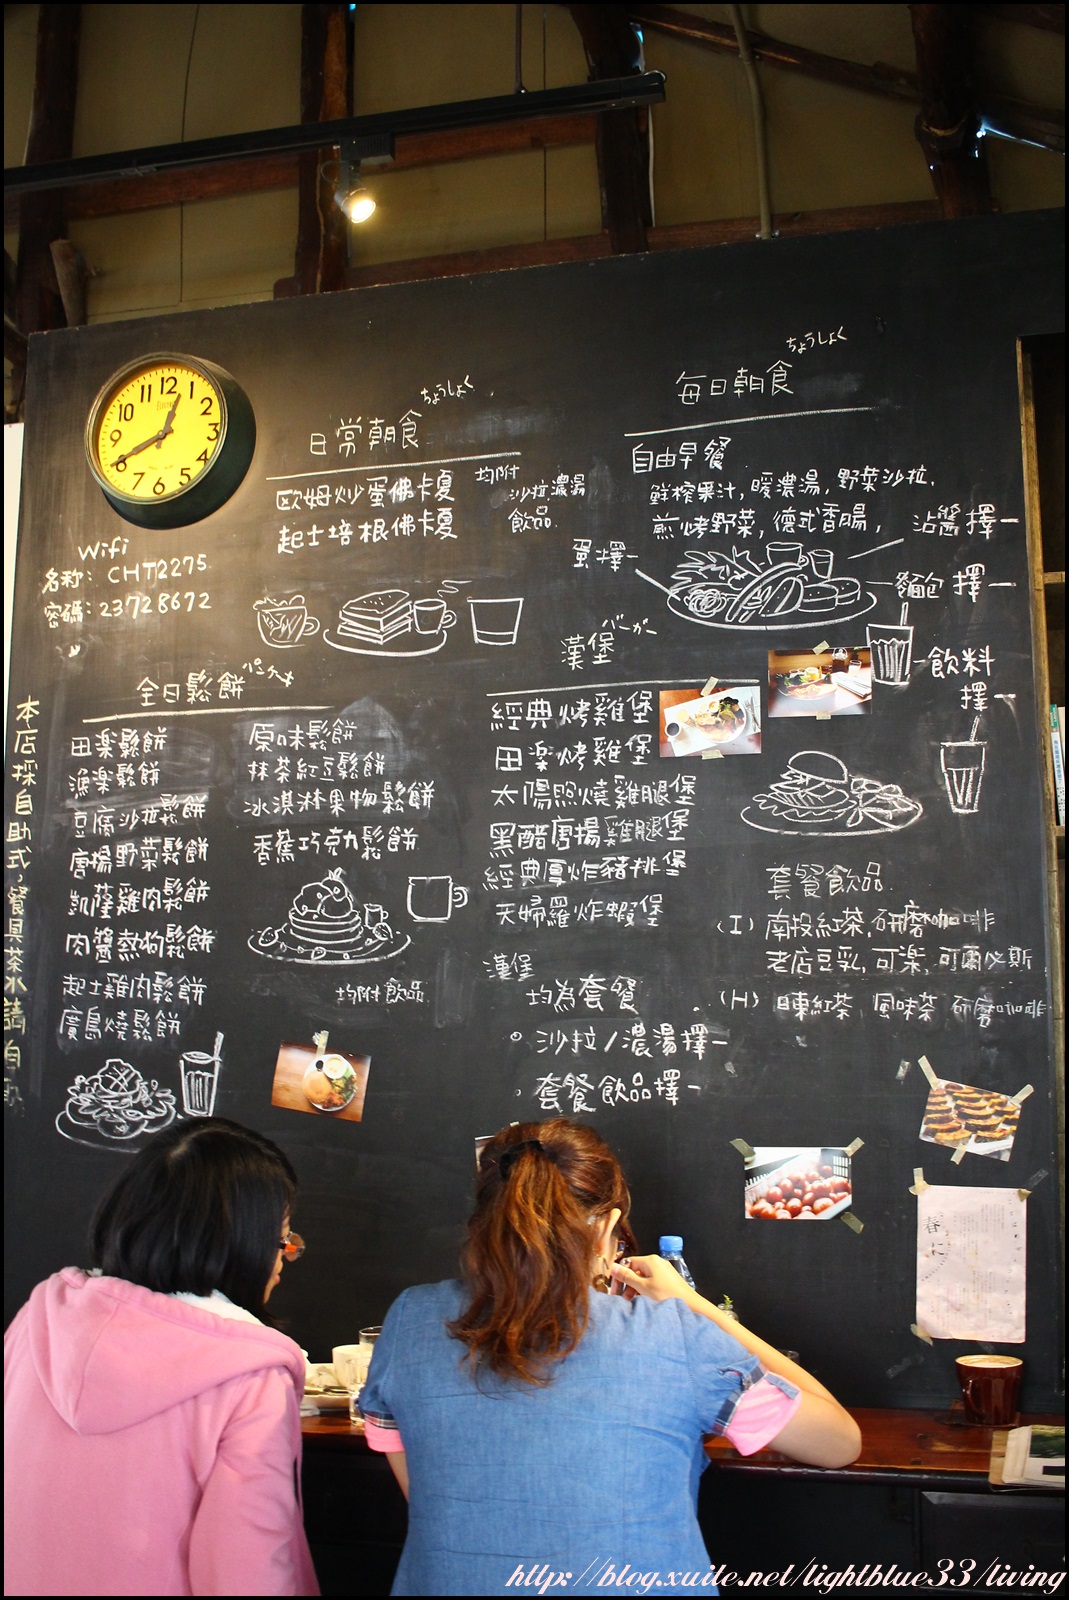 12
1
2
3
4
5
6
7
8
9
10
11
ちょうしょく
日常朝食
歐姆炒蛋佛卡夏
起士培根佛卡夏
均附
沙拉濃湯
飲品.
ちょうしょく
每日朝食
自由早餐
鮮榨果汁,暖濃湯,野菜沙拉.
煎烤野菜,德式香腸,
沾醬擇一
蛋擇一
麵包擇一
飲料
擇一
Wifi
名称: CHT12275
密碼: 23728672
本店採自助式,餐具茶水請自
全日鬆餅
田楽鬆餅
漁楽鬆餅
豆腐沙拉鬆餅
唐揚野菜鬆餅
凱薩雞肉鬆餅
肉醬熱狗鬆餅
起士雞肉鬆餅
廣島燒鬆餅
原味鬆餅
抹茶紅豆鬆餅
冰淇淋果物鬆餅
香蕉巧克力鬆餅
均附飲品
漢堡
バーガー
經典烤雞堡
田楽烤雞堡
太陽照燒雞腿堡
黑醋唐揚雞腿堡
經典厚炸豬排堡
天婦羅炸蝦堡
漢堡
均為套餐
沙拉/濃湯擇一
套餐飲品擇一
套餐飲品
(I) 南投紅茶,研磨咖啡
老店豆乳,可楽,可爾必斯
(H) 日東紅茶 風味茶 研磨咖啡
春に
http://blog.xuite.net/lightblue33/living